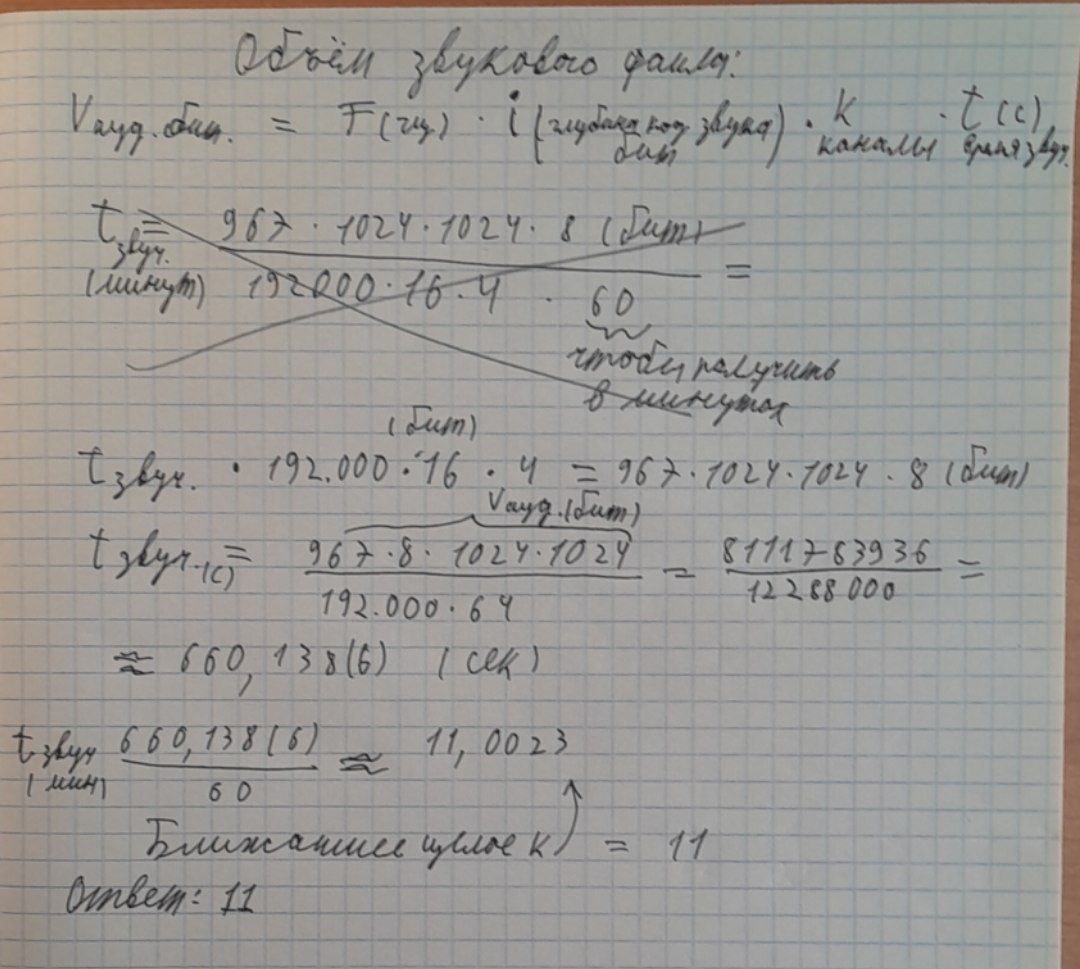 Объём звукового файла:
Vауд. бит. = F(гц) · i (глубина код звука) бит · k каналы · t(с) время звуч.
t звуч. (минут) = 967 · 1024 · 1024 · 8 (бит) =
192000 · 16 · 4 · 60
чтобы получить
в минутах
(бит)
t звуч. · 192.000 · 16 · 4 = 967 · 1024 · 1024 · 8 (бит)
Vауд.(бит)
t звуч.(с) = 967 · 8 · 1024 · 1024 = 8111783936 =
192.000 · 64 12288000
≈ 660,138(6) (сек)
t звуч (мин) 660,138(6) ≈ 11,0023
60
Ближайшее целое к = 11
Ответ: 11